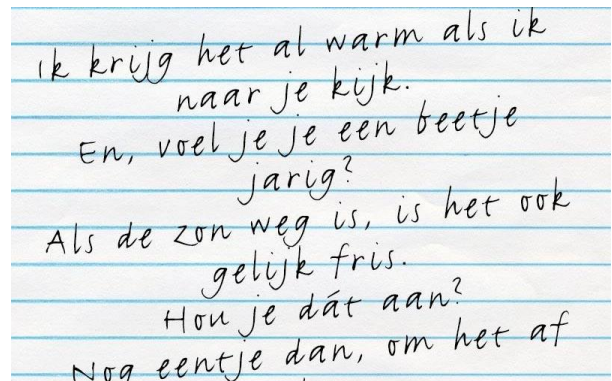 Ik krijg het al warm als ik
naar je kijk.
En, voel je je een beetje
jarig?
Als de zon weg is, is het ook
gelijk fris.
Hou je dát aan?
Nog eentje dan, om het af